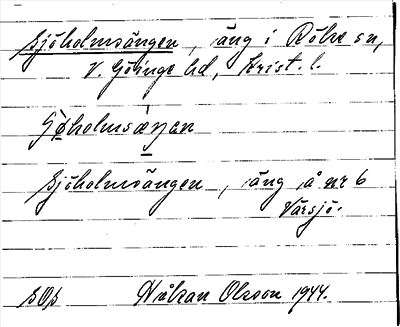 Sjöholmsängen, äng i Röke sn,
V. Göinge hd, Krist. l.
Sjöholmsängen, äng å nr 6
Värsjö.
Håkan Olsson 1944.